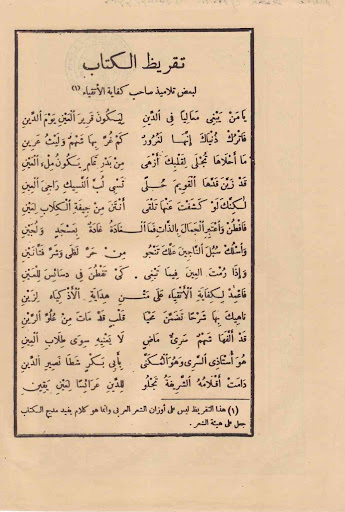 تقريظ الكتاب
لبعض تلاميذ صاحب كفاية الأتقياء (١)
يَا مَنْ يَبْغِى مَعَالِيًا فِي الدِّينِ لِيَكُونَ قَرِيرَ الْعَيْنِ يَوْمَ الدِّينِ
فَاتْرُكْ دُنْيَاكَ إِنَّهَا لَغَرُورٌ كَمْ غُرَّ بِهَا شَهْمٌ وَلَيْثُ عَرِينِ
مَا أَحْلَاهَا تُجْلَى لِقَلْبِكَ أَزْهَى مِنْ بَدْرِ تَمَامٍ يَكُونُ مِلْءَ الْعَيْنِ
قَدْ زَيَّنَ قَدَّهَا الْقَوِيمَ حُلًى تَسْبِى لُبَّ النَّسِيكِ رَاجِىَ الْعِينِ
لٰكِنَّكَ لَوْ كَشَفْتَ عَنْهَا تَلْقَى أَنْتَنَ مِنْ جِيفَةِ الْكِلَابِ لِعَيْنِ
فَافْطُنْ وَاعْتَبِرِ الْجَمَالَ بِالذَّاتِ فَمَا الْغَادَةُ غَادَةٌ بِعَسْجَدٍ وَلُجَيْنِ
وَاسْلُكْ سُبُلَ النَّاجِينَ عَلَّكَ تَنْجُو مِنْ حَرِّ لَظًى وَشَرِّ فَتَّانَيْنِ
وَإِذَا رُمْتَ الْعَيْنَ فِيمَا تَبْغِى كَىْ تَفْطُنَ فِي دَسَائِسٍ لِلْعَيْنِ
فَاعْمِدْ لِكِفَايَةِ الْأَتْقِيَاءِ عَلَى مَتْنِ هِدَايَةِ الْأَذْكِيَاءِ لِزَيْنِ
نَاهِيكَ بِهَا شَرْحًا تَضَمَّنَ مَحْيَا قَلْبٍ قَدْ مَاتَ مِنْ عُلُوِّ الرَّيْنِ
قَدْ أَلَّفَهَا شَهْمٌ سَرِىٌّ مَاضٍ لَا يَعْنِيهِ سِوَى طِلَابِ الْعِينِ
هُوَ أُسْتَاذِى السَّرِى وَهُوَ الْمُكَنَّى بِأَبِى بَكْرِ شَطَا نَصِيرِ الدِّينِ
دَامَتْ أَقْلَامُهُ الشَّرِيفَةُ تَجْلُو لِلدِّينِ عَرَائِسًا لِعَيْنِ يَقِينِ
(١) هذا التقريظ ليس على أوزان الشعر العربى وانما هو كلام يفيد مدح الكتاب
جعل على هيئة الشعر .